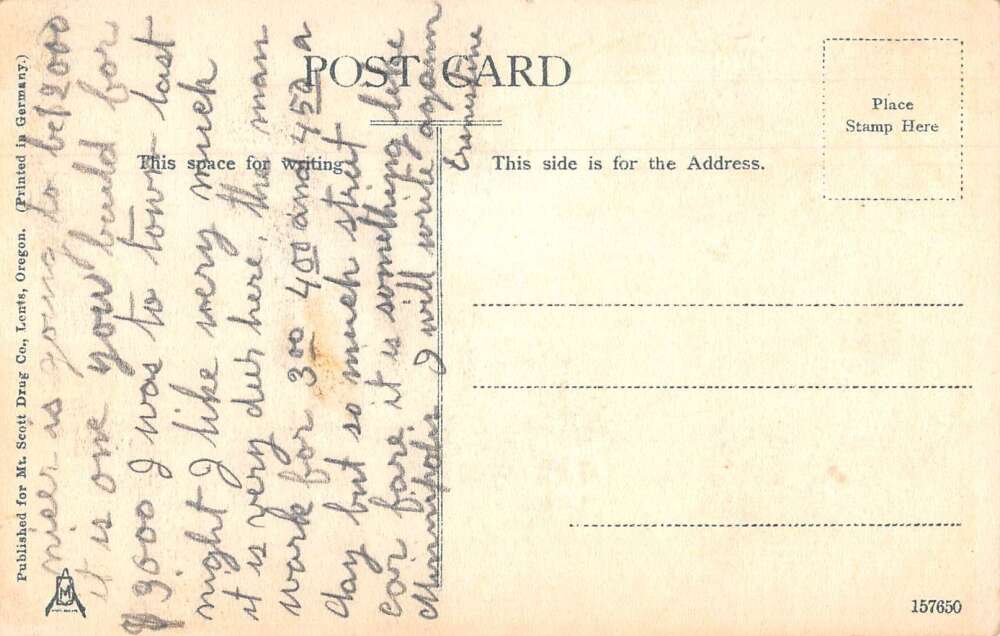 POST CARD
This space for writing.
This side is for the Address.
Place
Stamp Here
Published for Mt. Scott Drug Co., Lents, Oregon. (Printed in Germany.)
157650
M
nier is going to be $2000
it is one you build for
$9000 I was to town last
night I like wery much
it is very deir here. the man
work for 3.00 4.00 and 4.50 a
day but so much street
car fare it is something like
Minnipolis I will write again